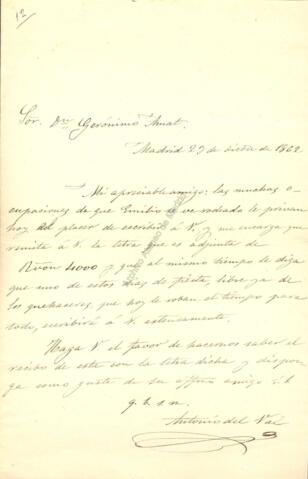 12
Sor. Dn. Gerónimo Amat.
Madrid 23 de dicbre de 1862
Mi apreciable amigo: las muchas o-
cupaciones de que Emilio se ve rodeado le privan
hoy del placer de escribir á V. y me encarga que
remita á V. la letra que es adjunta de
Rvon 4000 y que al mismo tiempo le diga
que uno de estos dias de fiesta, libre ya de
los quehaceres, que hoy le roban el tiempo para
todo, escribirá á V. estensamente.
Haga V. el favor de hacernos saber el
recibo de esta con la letra dicha y dispon-
ga como guste de su affmo amigo S. S.
q. b. s. m.
Antonio del Val